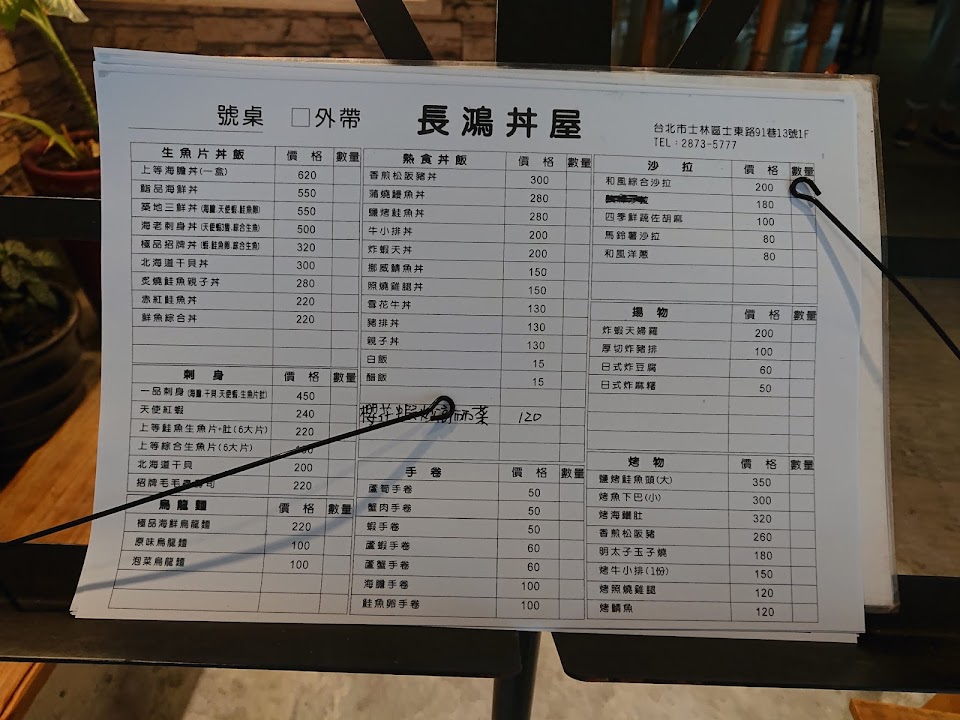 號桌 □外帶 長鴻丼屋
台北市士林區士東路91巷13號1F
TEL：2873-5777
生魚片丼飯 價格 數量
上等海膽丼(一盒) 620
極品海鮮丼 550
築地三鮮丼(海膽.天使蝦.鮭魚卵) 550
海老刺身丼(天使蝦3隻.綜合生魚) 500
極品招牌丼(蝦.鮭魚卵.綜合生魚) 320
北海道干貝丼 300
炙燒鮭魚親子丼 280
赤紅鮭魚丼 220
鮮魚綜合丼 220
刺身 價格 數量
一品刺身(海膽.干貝.天使蝦.生魚片.肚) 450
天使紅蝦 240
上等鮭魚生魚片+肚(6大片) 220
上等綜合生魚片(6大片)
北海道干貝 200
招牌毛毛蟲壽司 220
烏龍麵 價格 數量
極品海鮮烏龍麵 220
原味烏龍麵 100
泡菜烏龍麵 100
熟食丼飯 價格 數量
香煎松阪豬丼 300
蒲燒鰻魚丼 280
鹽烤鮭魚丼 280
牛小排丼 200
炸蝦天丼 200
挪威鯖魚丼 150
照燒雞腿丼 150
雪花牛丼 130
豬排丼 130
親子丼 130
白飯 15
醋飯 15
櫻花蝦 120
手卷 價格 數量
蘆筍手卷 50
蟹肉手卷 50
蝦手卷 50
蘆蝦手卷 60
蘆蟹手卷 60
海膽手卷 100
鮭魚卵手卷 100
沙拉 價格 數量
和風綜合沙拉 200
180
四季鮮蔬佐胡麻 100
馬鈴薯沙拉 80
和風洋蔥 80
揚物 價格 數量
炸蝦天婦羅 200
厚切炸豬排 100
日式炸豆腐 60
日式炸麻糬 50
烤物 價格 數量
鹽烤鮭魚頭(大) 350
烤魚下巴(小) 300
烤海鱺肚 320
香煎松阪豬 260
明太子玉子燒 180
烤牛小排(1份) 150
烤照燒雞腿 120
烤鯖魚 120